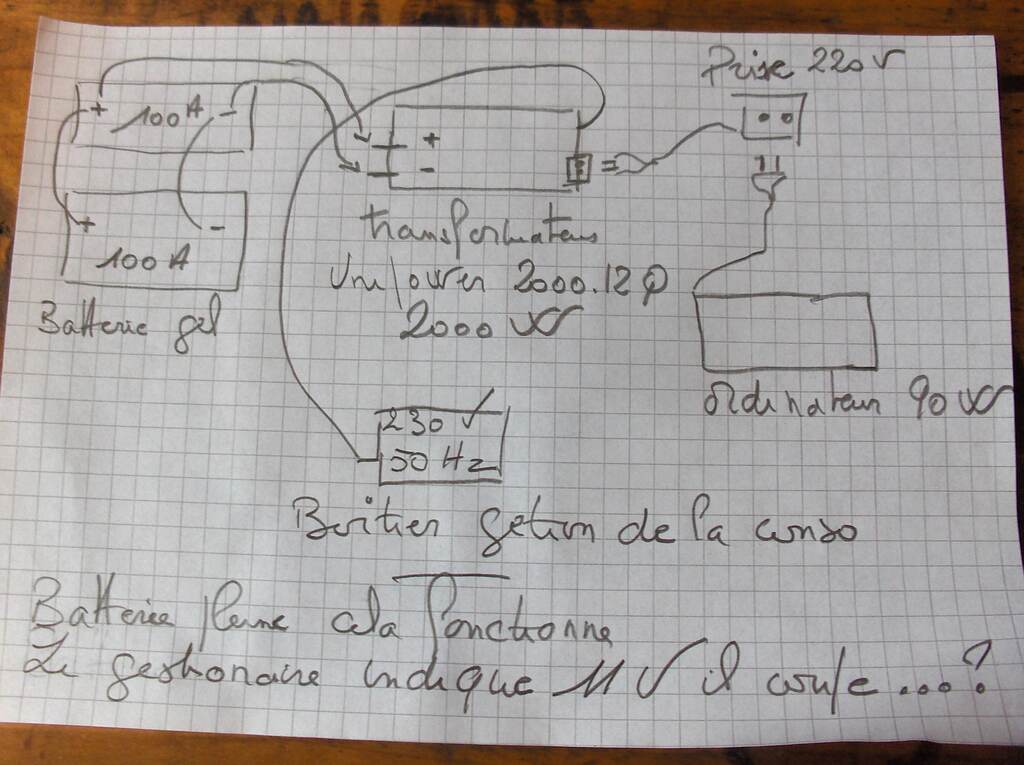 Prise 220 V
+ 100 A -
+ -
100 A
Batterie gel
+
-
transformateur
2000.12
2000 W
Ordinateur 90 W
230 V
50 Hz
Boitier gestion de la conso
Batterie pleine cela fonctionne
Le gestionaire indique 11 V il coupe ...?